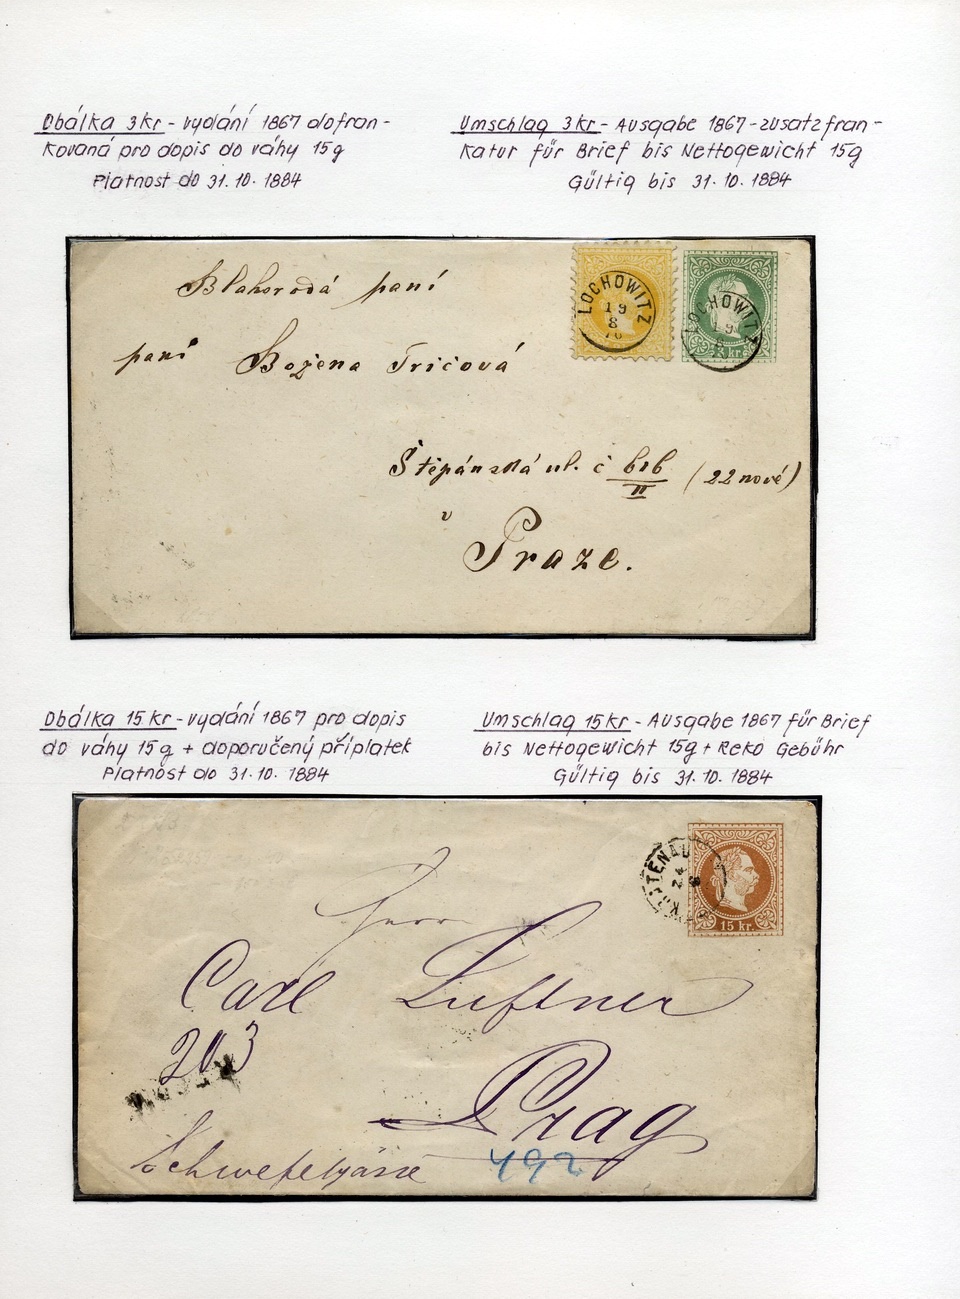 Obálka 3 kr - vydání 1867 dofran-
kovaná pro dopis do váhy 15g
Platnost do 31.10.1884
Umschlag 3kr - Ausgabe 1867 - zusatzfran-
katur für Brief bis Nettogewicht 15g
Gültig bis 31.10.1884
LOCHOWITZ
19
8
LOCHOWITZ
19
3 kr.
Blahorodá paní
paní Božena Tričová
Štěpánská ul. č 616/II (22 nové)
v
Praze.
Obálka 15 kr - vydání 1867 pro dopis
do váhy 15g + doporučený příplatek
Platnost do 31.10.1884
Umschlag 15kr - Ausgabe 1867 für Brief
bis Nettogewicht 15g + Reko Gebühr
Gültig bis 31.10.1884
24
15 kr.
Herr
Carl Luftner
203
Prag
Schwefelgasse
492